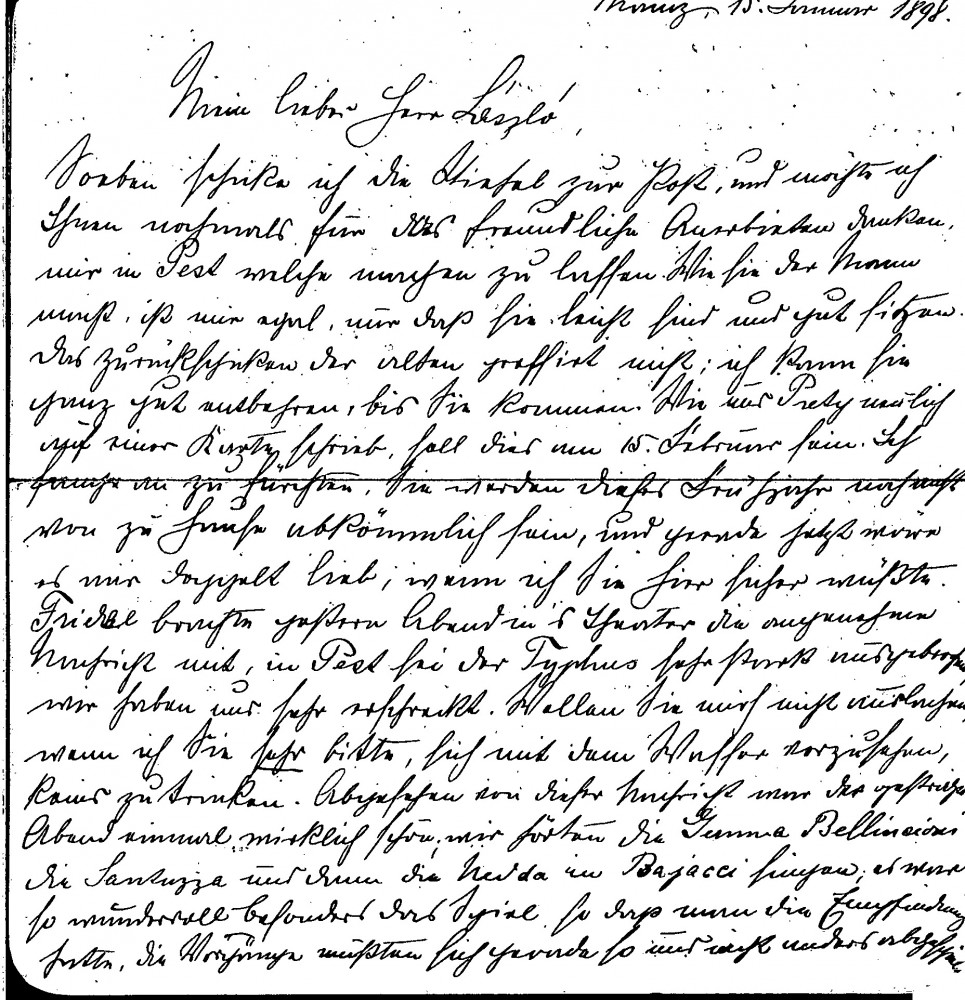 Mainz, 15. Januar 1898.
Mein lieber Herr László,
Soeben schicke ich die Stiefel zur Post, und möchte ich
Ihnen nochmals für das freundliche Anerbieten danken,
mir in Pest welche machen zu lassen. Wie sie der Mann
macht, ist mir egal, nur daß sie leicht sind und gut sitzen.
Das Zurückschicken der alten pressirt nicht; ich kann sie
ganz gut entbehren, bis Sie kommen. Wie uns neulich
auf einer Karte schrieb, soll dies am 15. Februar sein. Ich
fange an zu fürchten, Sie werden dieses Frühjahr noch nicht
von zu Hause abkömmlich sein, und gerade jetzt wäre
es mir doppelt lieb, wenn ich Sie hier sicher wüßte.
Friedel brachte gestern Abend in's Theater die angenehme
Nachricht mit, in Pest sei der Typhus sehr stark ausgebrochen,
wir haben uns sehr erschreckt. Wollen Sie mich nicht auslachen,
wenn ich Sie sehr bitte, sich mit dem Wasser vorzusehen,
keins zu trinken. Abgesehen von dieser Nachricht war der gestrige
Abend einmal wirklich schön, wir hörten die Gemma Bellincioni
die Santuzza und dann die Nedda in Bajacci singen, es war
so wundervoll besonders das Spiel, so daß man die Empfindung
hatte, die Vorgänge müßten sich gerade so und nicht anders abspielen